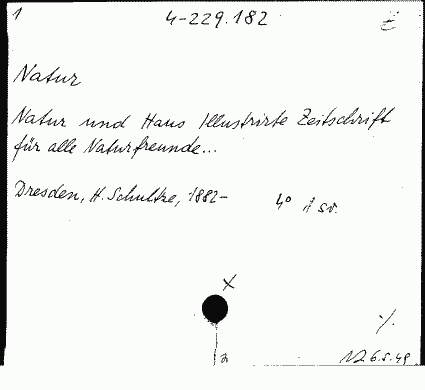 1
4-229.182
Natur
Natur und Haus Illustrirte Zeitschrift
für alle Naturfreunde...
Dresden, H. Schultze, 1882-
4° 1 sv.
X
./.
6.5.49